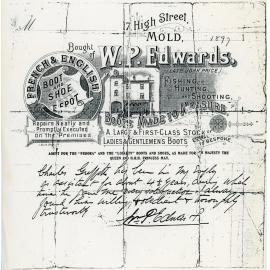 17, High Street,
MOLD, 1897
Bought of
W. P. Edwards,
(LATE JOHN PRICE)
FRENCH & ENGLISH
BOOT & SHOE DEPOT.
FISHING,
HUNTING,
AND
SHOOTING,
BOOTS MADE TO MEASURE
Repairs Neatly and
Promptly Executed
on the Premises
A LARGE & FIRST-CLASS STOCK
LADIES & GENTLEMEN'S BOOTS
BESPOKE
AGENT FOR THE "FEDORA" AND THE "LORNE" BOOTS AND SHOES, AS MADE FOR HER MAJESTY THE
QUEEN AND H.R.H. PRINCESS MAY.
Charles Griffiths has been in my employ
as for about 4½ years, during which
time he
found him willing & obedient & thoroughly
trustworthy
W. P. Edwards